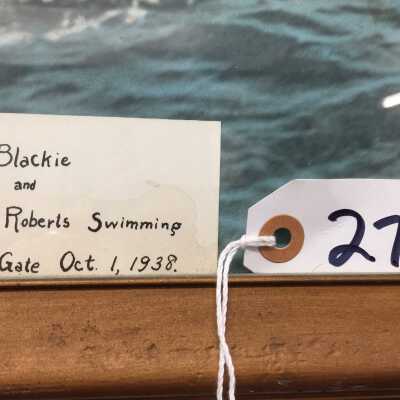 Blackie
and
Roberts Swimming
Gate Oct. 1, 1938.
27